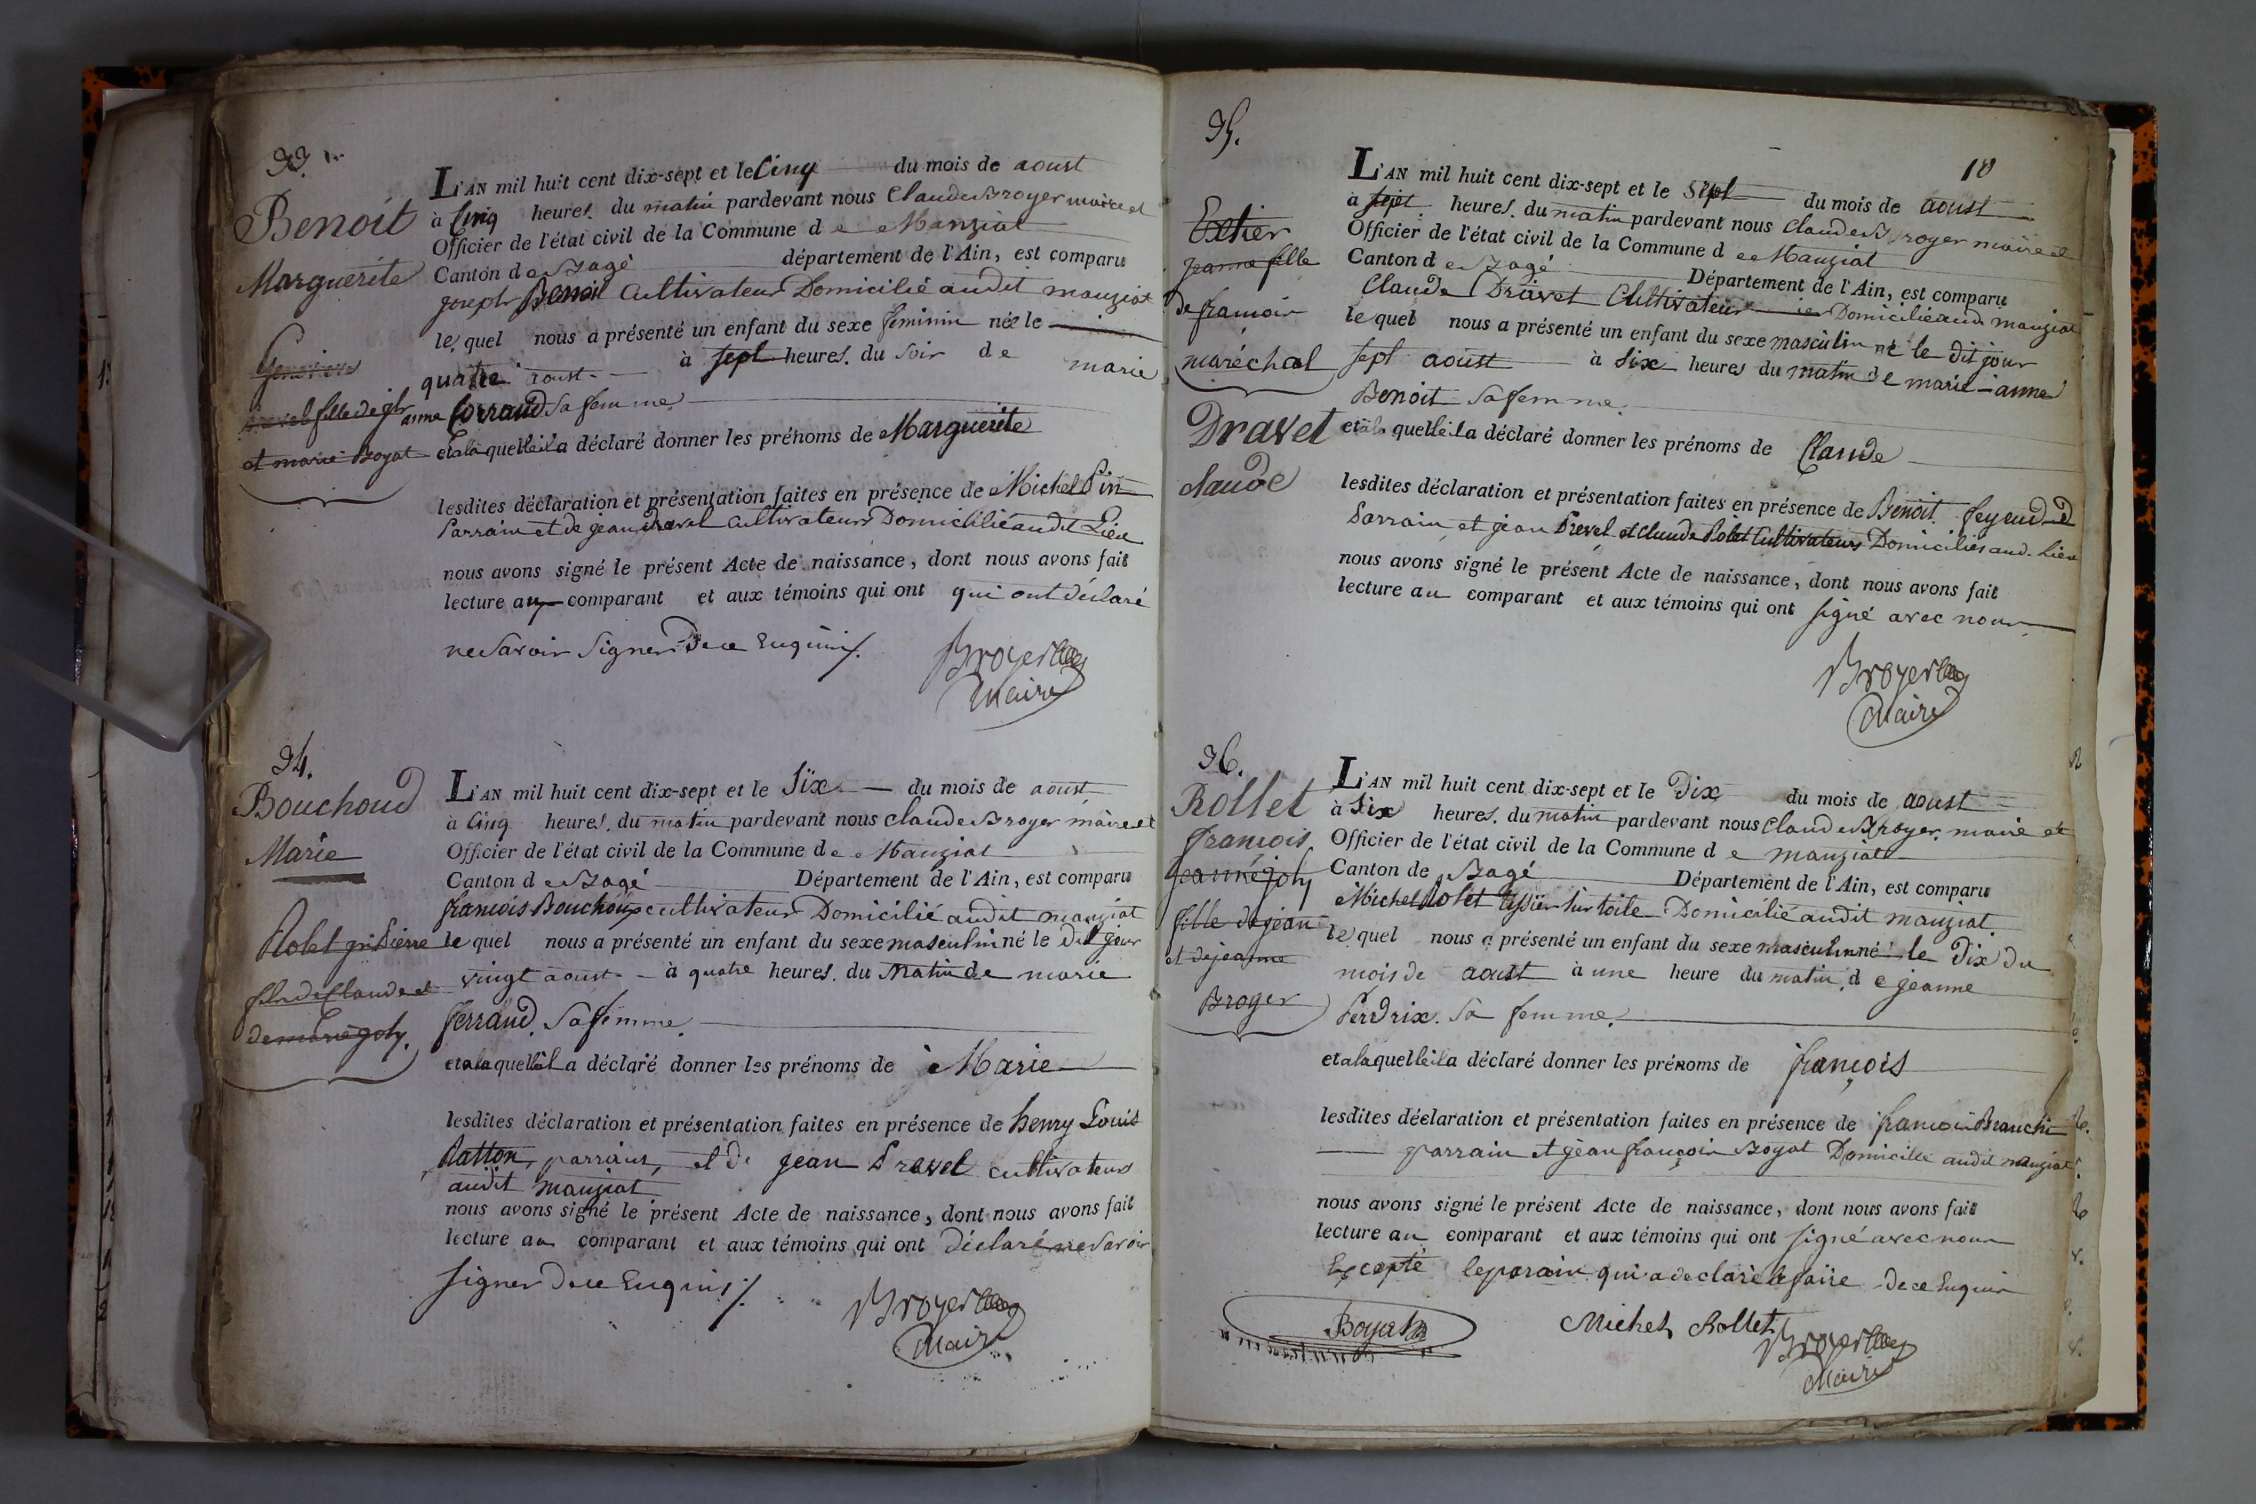 33.
Benoit
Marguerite
L'AN mil huit cent dix-sept et le Cinq du mois de aoust
à Cinq heures. du matin pardevant nous Claude Broyer maire et
Officier de l'état civil de la Commune de Manziat
Canton de Bagé département de l'Ain, est comparu
joseph Benoit Cultivateur Domicilié audit manziat
lequel nous a présenté un enfant du sexe feminin née le
quatre aoust à sept heures. du soir de marie
anne Corraud Sa femme
et a laquelle il a déclaré donner les prénoms de Marguerite
fille de
et marie Boyat
lesdites déclaration et présentation faites en présence de Michel Pin
Parrain et de jean Dravel Cultivateurs Domicilié audit Lieu
nous avons signé le présent Acte de naissance, dont nous avons fait
lecture au comparant et aux témoins qui ont qui ont déclaré
ne Savoir Signer De ce Enquis/.
Broyer
Maire
34.
Bouchoud
Marie
L'AN mil huit cent dix-sept et le Six du mois de aoust
à Cinq heures. du matin pardevant nous claude Broyer maire et
Officier de l'état civil de la Commune de Manziat
Canton de Bagé Département de l'Ain, est comparu
francois Bouchoux cultivateur Domicilié audit manziat
Rolet Pierre
fils de Claude et
de marie joly.
lequel nous a présenté un enfant du sexe masculin né le Dit jour
vingt aoust à quatre heures. du Matin de marie
ferraud. Sa femme.
et a laquelle il a déclaré donner les prénoms de Marie
lesdites déclaration et présentation faites en présence de henry Louis
Ratton, parrain, et De jean Pravel cultivateurs
audit manziat
nous avons signé le présent Acte de naissance, dont nous avons fait
lecture au comparant et aux témoins qui ont Déclaré ne Savoir
Signer De ce Enquis/.
Broyer
Maire
35.
18
L'AN mil huit cent dix-sept et le Sept du mois de aoust
à sept heures. du matin pardevant nous Claude Broyer maire et
Officier de l'état civil de la Commune de Manziat
Canton de Bagé Département de l'Ain, est comparu
Extier
jeanne fille
de francois
maréchal
Claude Dravet Cultivateur Domicilié aud. manziat
lequel nous a présenté un enfant du sexe masculin né le dit jour
sept aoust à six heures du matin de marie-anne
Benoit Sa femme.
Dravet
claude
et a laquelle il a déclaré donner les prénoms de Claude
lesdites déclaration et présentation faites en présence de Benoit
Parrain et jean Prevel et claude Rolet Cultivateurs Domiciliés aud. Lieu
nous avons signé le présent Acte de naissance, dont nous avons fait
lecture au comparant et aux témoins qui ont signé avec nous
Broyer
Maire
36.
Rollet
francois
L'AN mil huit cent dix-sept et le Dix du mois de aoust
à Six heures. du matin pardevant nous Claude Broyer. maire et
Officier de l'état civil de la Commune de manziat
Canton de Bagé Département de l'Ain, est comparu
jeanne joly
fille de jean
et de jeanne
Broyer
Michel Rolet tissier sur toile Domicilié audit manziat.
lequel nous a présenté un enfant du sexe masculin né le Dix du
mois de aoust à une heure du matin, de jeanne
Perdrix. Sa femme.
et a laquelle il a déclaré donner les prénoms de françois
lesdites déclaration et présentation faites en présence de francois Branche
parrain et jean françois Boyat Domicilié audit manziat
nous avons signé le présent Acte de naissance, dont nous avons fait
lecture au comparant et aux témoins qui ont signé avec nous
Excepté le parain qui a declaré le faire De ce Enquis
Boyat
Michel Rollet
Broyer
Maire